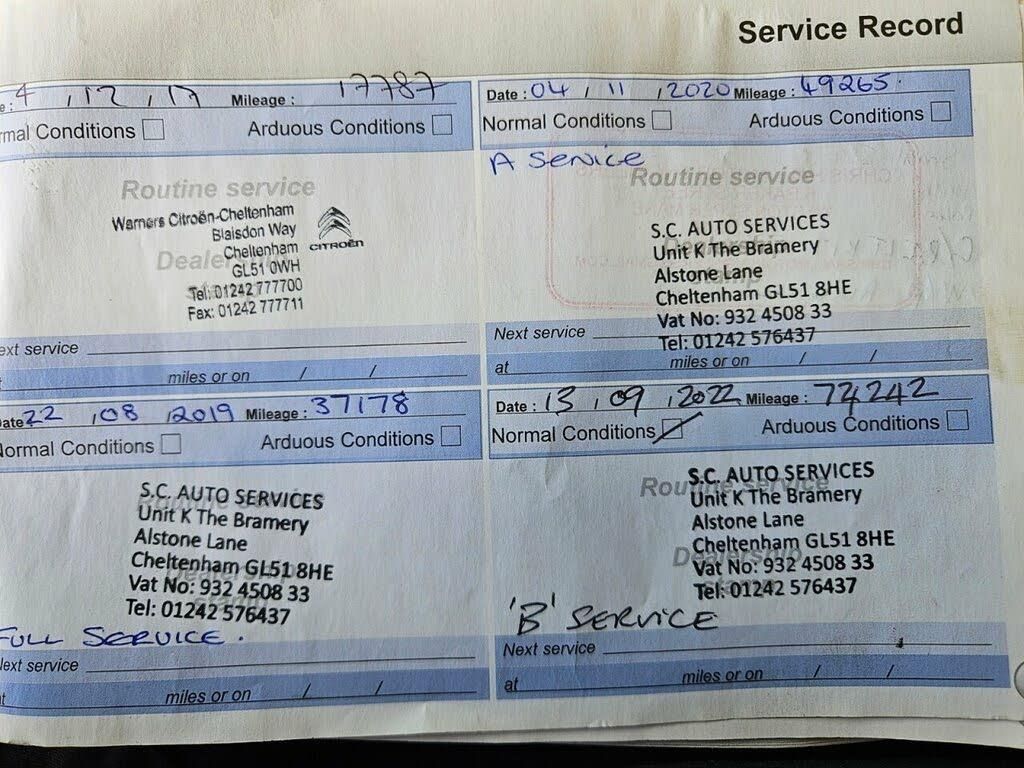 Service Record
e: 4 / 12 / 17 Mileage : 17787
rmal Conditions Arduous Conditions
Routine service
Warners Citroën-Cheltenham
Blaisdon Way
Cheltenham
GL51 0WH
Tel: 01242 777700
Fax: 01242 777711
CITROËN
ext service
miles or on / /
Date : 04 / 11 / 2020 Mileage : 49265
Normal Conditions Arduous Conditions
A Service
Routine service
S.C. AUTO SERVICES
Unit K The Bramery
Alstone Lane
Cheltenham GL51 8HE
Vat No: 932 4508 33
Tel: 01242 576437
Next service
at miles or on / /
ate 22 / 08 / 2019 Mileage : 37178
Normal Conditions Arduous Conditions
S.C. AUTO SERVICES
Unit K The Bramery
Alstone Lane
Cheltenham GL51 8HE
Vat No: 932 4508 33
Tel: 01242 576437
FULL SERVICE.
Next service
t miles or on / /
Date : 13 / 09 / 2022 Mileage : 74242
Normal Conditions Arduous Conditions
S.C. AUTO SERVICES
Unit K The Bramery
Alstone Lane
Cheltenham GL51 8HE
Vat No: 932 4508 33
Tel: 01242 576437
'B' SERVICE
Next service
at miles or on / /